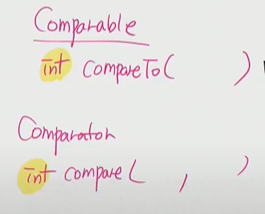 Comparable
int compareTo(          )
Comparator
int compare(     ,     )